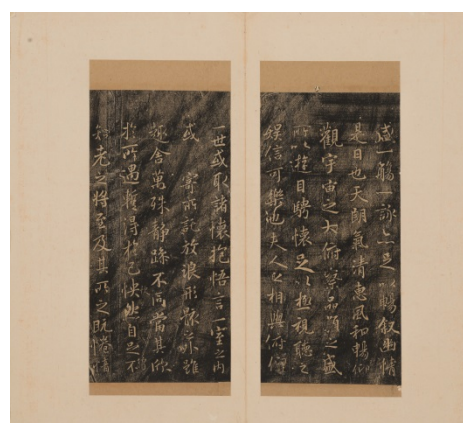 盛一觴一詠亦足以暢叙幽情
是日也天朗氣清惠風和暢仰
觀宇宙之大俯察品類之盛
所以遊目騁懷足以極視聽之
娛信可樂也夫人之相與俯仰
一世或取諸懷抱悟言一室之內
或寄所託放浪形骸之外雖
趣舍萬殊靜躁不同當其欣
於所遇暫得於己快然自足不
知老之將至及其所之既倦情